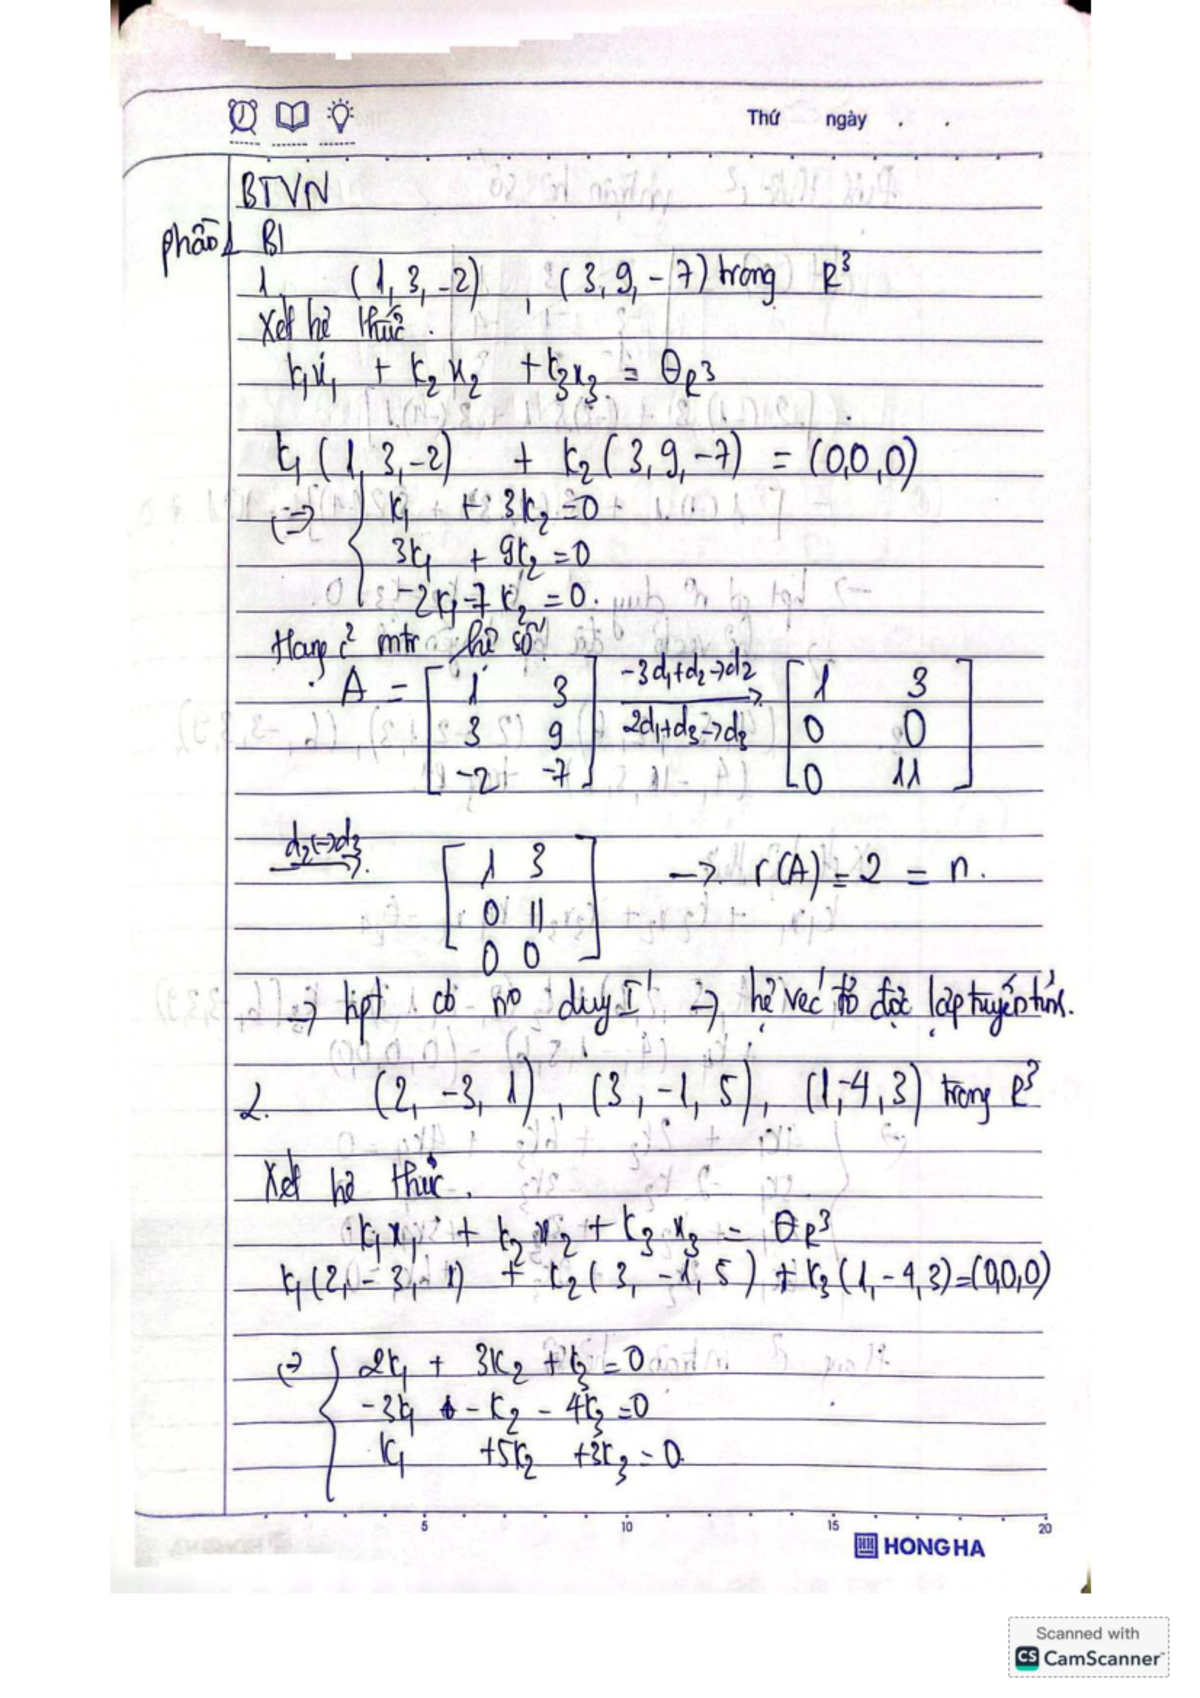 Thứ ngày . .
BTVN
phần 1 B1
1. (1, 3, -2) , (3, 9, -7) trong R³
Xét hệ thức.
k₁x₁ + k₂x₂ + k₃x₃ = θ_R³
k₁(1, 3, -2) + k₂(3, 9, -7) = (0,0,0)
(=> { k₁ + 3k₂ = 0
3k₁ + 9k₂ = 0
-2k₁ - 7k₂ = 0.
Hạng c² mtr hệ số
A = [1 3; 3 9; -2 -7] -3d₁+d₂→d₂ 2d₁+d₃→d₃ [1 3; 0 0; 0 11]
d₂↔d₃ [1 3; 0 11; 0 0] → r(A) = 2 = n.
→ hpt có no duy I' → hệ véc tơ độc lập tuyến tính.
2. (2, -3, 1), (3, -1, 5), (1, -4, 3) trong R³
Xét hệ thức.
k₁x₁ + k₂x₂ + k₃x₃ = θ_R³
k₁(2, -3, 1) + k₂(3, -1, 5) + k₃(1, -4, 3) = (0,0,0)
(=> { 2k₁ + 3k₂ + k₃ = 0
-3k₁ - k₂ - 4k₃ = 0
k₁ + 5k₂ + 3k₃ = 0.
5 10 15 20
HONG HA
Scanned with
CS CamScanner